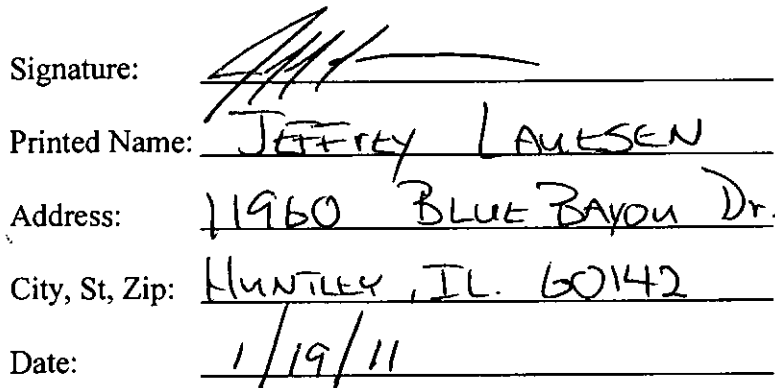 Signature:
Printed Name: JEFFREY LAUESEN
Address: 11960 BLUE BAYOU Dr.
City, St, Zip: HUNTLEY, IL. 60142
Date: 1/19/11